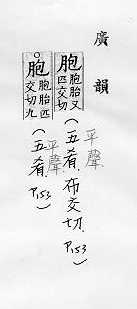 廣韻
胞 胞胎又匹交切 (五肴.布交切.P.153) 平聲
胞 胞胎匹交切九 (五肴.P.153) 平聲